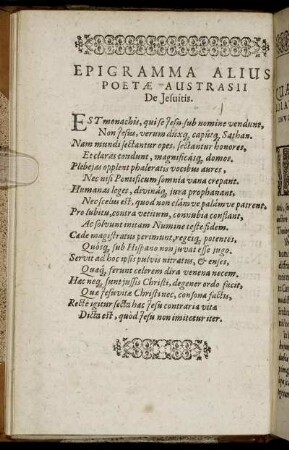 EPIGRAMMA ALIUS
POETÆ AUSTRASII
De Jesuitis.
EST monachis, qui se Jesu sub nomine vendunt,
Non Jesus, verum dūxq́, caputq́, Sathan.
Nam mundi sectantur opes, sectantur honores,
Et claras condunt, magnificasq́, domos.
Plebejas opplent phaleratis vocibus aures,
Nec nisi Pontificum somnia vana crepant.
Humanas leges, divinaq́, jura prophanant,
Nec scelus est, quod non clàm ve palàm ve patrent.
Pro lubitu, contra vetitum, connubia constant,
Ac solvunt initam Numine teste fidem.
Cæde magistratus perimunt, regesq́, potentes,
Quosq́, sub Hispano non juvat esse jugo.
Servit ad hoc ipsis pulvis nitratus, & enses,
Quaq́, ferunt celerem dira venena necem.
Hæc neq́, sunt jussis Christi, degener ordo facit,
Quæ Jesuvitæ Christi nec, consona factis,
Rectè igitur secta hæc Jesu contraria vita
Dicta est, quòd Jesu non imitetur iter.